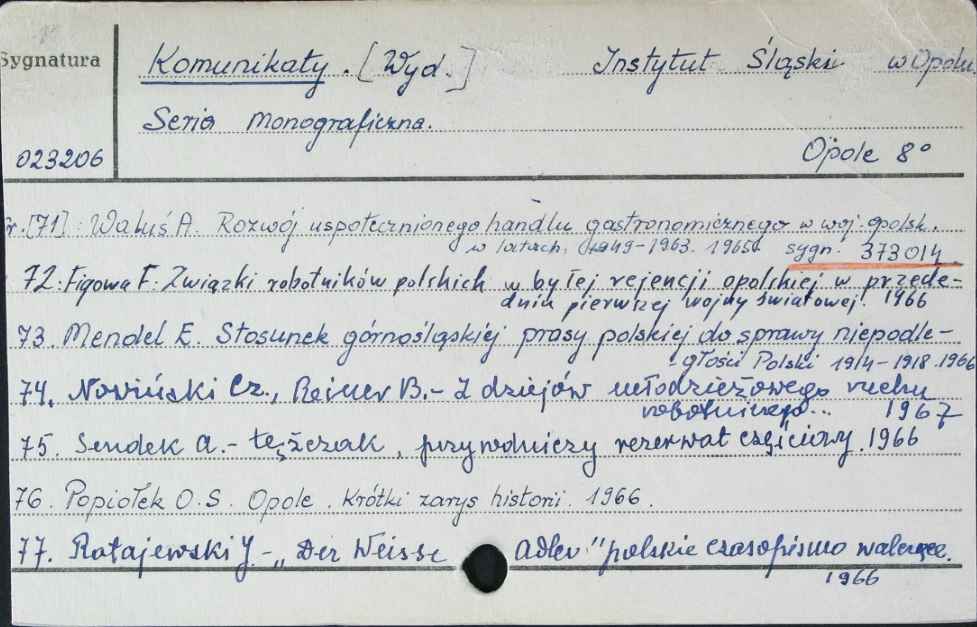 Sygnatura
Komunikaty. [Wyd.] Instytut Śląski w Opolu
Seria monograficzna.
023206
Opole 8°
[71] Waluś A. Rozwój uspołecznionego handlu gastronomicznego w woj. opolsk.
w latach 1949-1963. 1965 sygn. 373014.
72. Figowa F. Związki robotników polskich w byłej rejencji opolskiej w przede-
dniu pierwszej wojny światowej. 1966
73. Mendel E. Stosunek górnośląskiej prasy polskiej do sprawy niepodle-
głości Polski 1914-1918. 1966
74. Nowiński Cz., Reiner B. - Z dziejów młodzieżowego ruchu
robotniczego... 1967
75. Sendek A. - Łężczak, przyrodniczy rezerwat częściowy. 1966
76. Popiołek O.S. Opole. Krótki zarys historii. 1966.
77. Ratajewski J. - „Der Weisse Adler" polskie czasopismo walczące.
1966